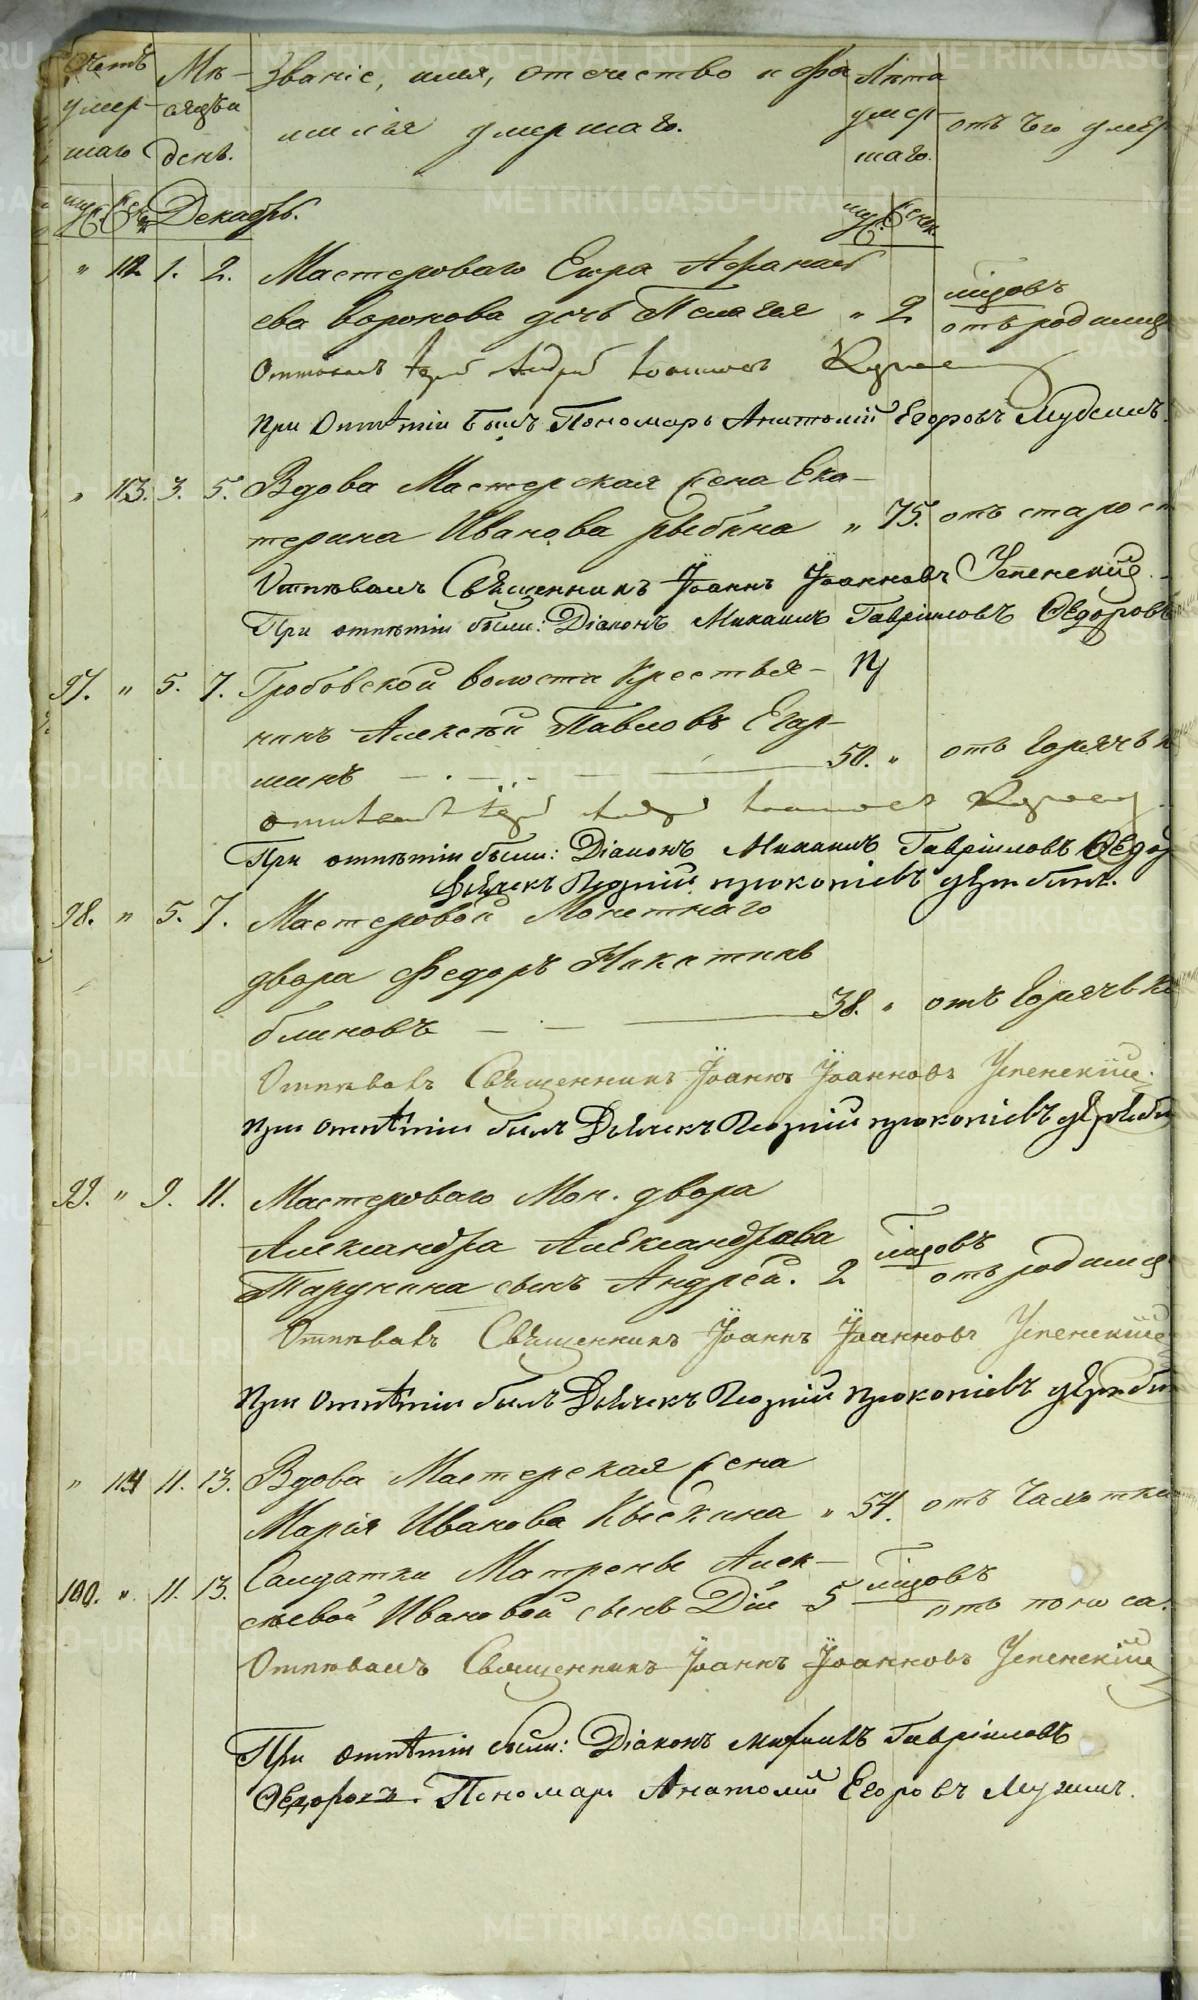 Счетъ умер- шаго
Мѣ- сяцъ и день.
Званіе, имя, отчество и фа
милія умершаго.
Лѣта умер- шаго.
отъ чего умер
муж. жен. Декабрь. муж. жен.
" 112 1. 2. Мастероваго Егора Афанась
ева Воронова дочь Пелагея " 2 мѣсяцовъ
отъ родимца
Отпѣвалъ Іерей Андрей Іоанновъ
При Отпѣтіи былъ Пономарь Анатолій Егоровъ
" 113. 3. 5. Вдова Мастерская жена Ека-
терина Иванова Рыбина " 75. отъ старост
Отпѣвалъ Священникъ Іоаннъ Іоанновъ Успенскій.
При отпѣтіи были: Діаконъ Михаилъ Гавріиловъ Ѳедоровъ
97. " 5. 7. Гробовской волости Крестья-
нинъ Алексѣй Павловъ
50. " отъ горячки
отпѣвалъ Іерей Андрей Іоанновъ
При отпѣтіи были: Діаконъ Михаилъ Гавріиловъ Ѳедо
Дьячекъ Прокопіевъ
98. " 5. 7. Мастеровой Монетнаго
двора Ѳедоръ Никитинъ
Блиновъ 38. " отъ горячки
Отпѣвалъ Священникъ Іоаннъ Іоанновъ Успенскій.
При Отпѣтіи былъ Дьячекъ Прокопіевъ
99. " 9. 11. Мастероваго Мон. двора
Александра Александрова
сынъ Андрей. 2 мѣсяцовъ
отъ родимца
Отпѣвалъ Священникъ Іоаннъ Іоанновъ Успенскій
При Отпѣтіи былъ Дьячекъ Прокопіевъ
" 114 11. 13. Вдова Мастерская жена
Марія Иванова " 54. отъ чахотки
100. " 11. 13. Солдатки Матрены Алек-
сѣевой Ивановой сынъ Дій 5 мѣсяцовъ
отъ поноса.
Отпѣвалъ Священникъ Іоаннъ Іоанновъ Успенскій
При отпѣтіи были: Діаконъ Михаилъ Гавріиловъ
Ѳедоровъ. Пономарь Анатолій Егоровъ
METRIKI.GASO-URAL.RU